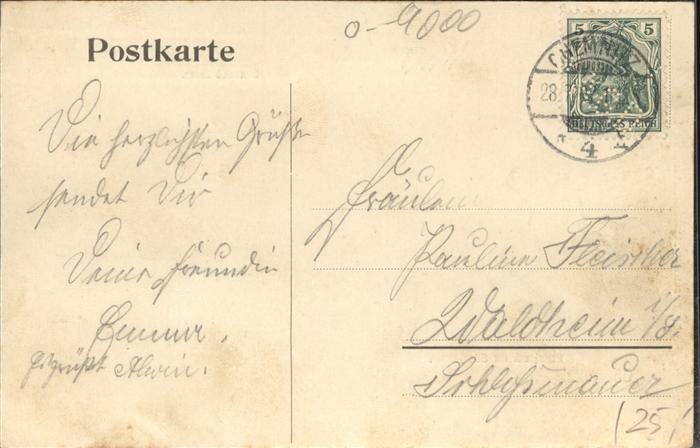 o-9000
Postkarte
5 5
CHEMNITZ
28.
4
DEUTSCHES REICH
Die herzlichsten Grüße
sendet Dir
Deine Freundin
Emma.
Es grüßt Alwin.
Fräulein
Pauline Fleischer
Waldheim i/S.
Schloßmauer
(25)